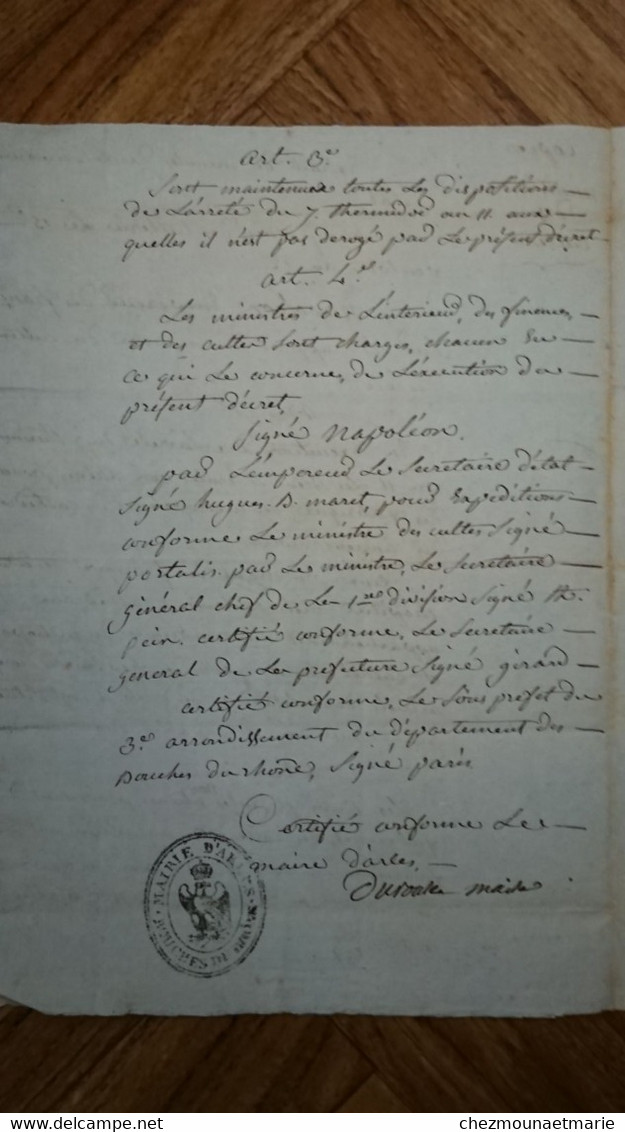 art. 3.e
Sont maintenues toutes les dispositions
de L'arreté du 7. thermidor an 11. aux
quelles il n'est pas derogé par Le présent décret
art. 4.e
Les ministres de L'interieur, des finances,
et des cultes sont charges, chacun En
ce qui Le concerne, de L'éxécution du
présent décret,
Signé napoléon.
par L'empereur Le Secretaire d'état
Signé hugues. B. maret, pour Expéditions
conforme Le ministre des cultes Signé
portalis. par Le ministre, Le Secretaire
général chef de La 1.re division Signé
certifié conforme, Le Secretaire
general de La prefecture Signé girard
certifié conforme, Le Sous prefet du
3.e arrondissement du département des
Bouches du rhône, Signé paris
Certifié conforme Le
maire d'arles,
maire
MAIRIE D'ARLES
BOUCHES DU RHÔNE
delcampe.net
chezmounaetmarie